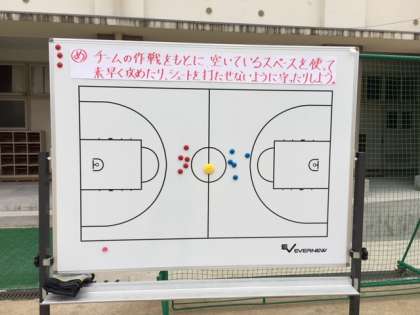 め チームの作戦をもとに 空いているスペースを使って
素早く攻めたり、シュートを打たせないように守ったりしよう。
EVERNEW